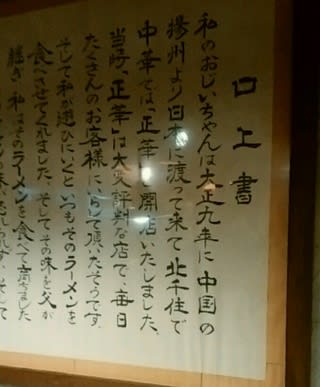 口上書
私のおじいちゃんは大正九年に中国の
揚州より日本に渡って来て北千住で
中華そば「正華」を開店いたしました。
当時、「正華」は大変評判な店で、毎日
たくさんのお客様にいらして頂いたそうです。
そして私が遊びにいくといつもそのラーメンを
食べさせてくれました。そしてその味を父が
継ぎ、私はそのラーメンを食べて育ちました